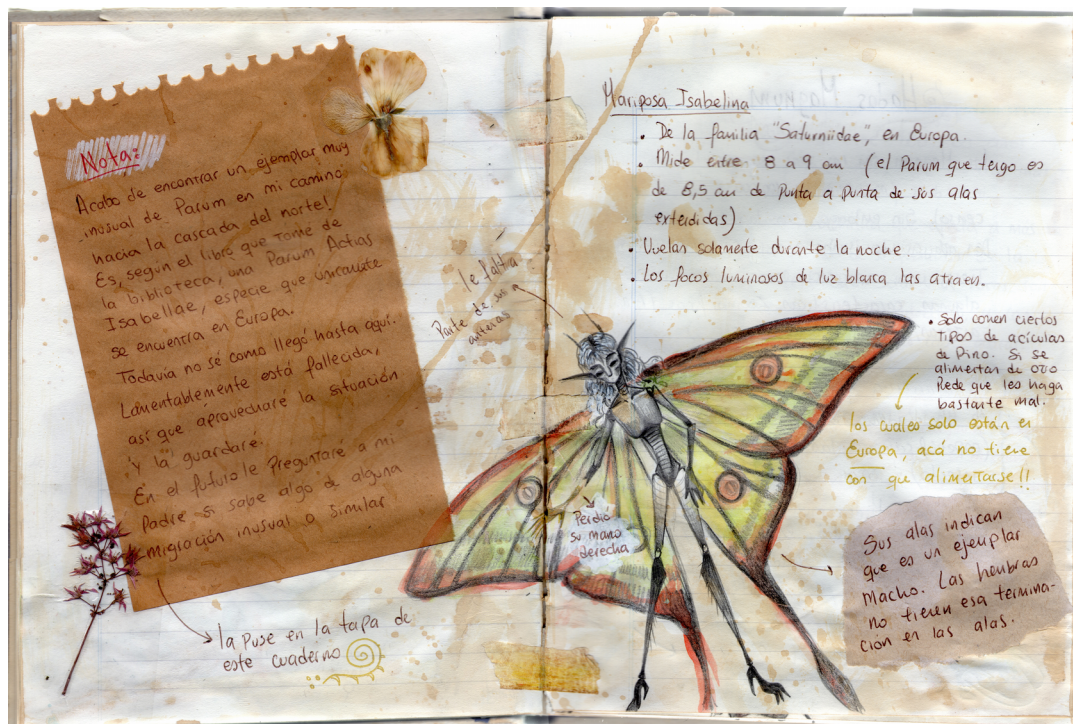 Nota:
Acabo de encontrar un ejemplar muy
inusual de Parum en mi camino
hacia la cascada del norte!
Es, según el libro que tomé de
la biblioteca, una Parum Actias
Isabellae, especie que únicamente
se encuentra en Europa.
Todavia no sé como llegó hasta aquí.
Lamentablemente está fallecida,
así que aprovecharé la situación
y la guardaré.
En el futuro le Preguntaré a mi
Padre si sabe algo de alguna
migración inusual o similar
la puse en la tapa de
este cuaderno
le falta
Parte de sus
antenas
Perdió
su mano
derecha
Mariposa Isabelina
• De la familia "Saturniidae", en Europa.
• Mide entre 8 a 9 cm (el Parum que tengo es
de 8,5 cm de Punta a Punta de sus alas
extendidas)
• Vuelan solamente durante la noche.
• Los focos luminosos de luz blanca las atraen.
• Solo comen ciertos
tipos de acículas
de Pino. Si se
alimentan de otro
Puede que les haga
bastante mal.
los cuales solo están en
Europa, acá no tiene
con que alimentarse!!
Sus alas indican
que es un ejemplar
macho. Las hembras
no tienen esa termina-
ción en las alas.